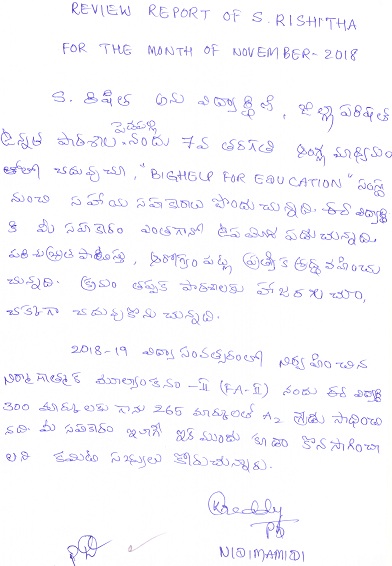 REVIEW REPORT OF S. RISHITHA
FOR THE MONTH OF NOVEMBER-2018
S. రిషిత అను విద్యార్థిని, జిల్లా పరిషత్
ఉన్నత పాఠశాల నందు 7వ తరగతి ఆంగ్ల మాధ్యమం
లో చదువుచూ, "BIGHELP FOR EDUCATION" సంస్థ
నుంచి సహాయ సహకారాలు పొందుచున్నది. ఈ విద్యార్థి
కి మీ సహకారం ఎంతగానో ఉపయోగ పడుచున్నది.
పరిశుభ్రత పాటిస్తూ, ఆరోగ్యం పట్ల ప్రత్యేక శ్రద్ధ వహించు
చున్నది. క్రమం తప్పక పాఠశాలకు హాజరగుచూ,
చక్కగా చదువుకొనుచున్నది.
2018-19 విద్యా సంవత్సరంలో నిర్వహించిన
నిర్మాణాత్మక మూల్యాంకనం -II (FA-II) నందు ఈ విద్యార్థి
300 మార్కులకు గాను 265 మార్కులతో A2 గ్రేడు సాధించి
నది. మీ సహకారం ఇలాగే ఇక ముందు కూడా కొనసాగించా
లని కమిటి సభ్యులు కోరుచున్నారు.
KReddy
NIDIMAMIDI